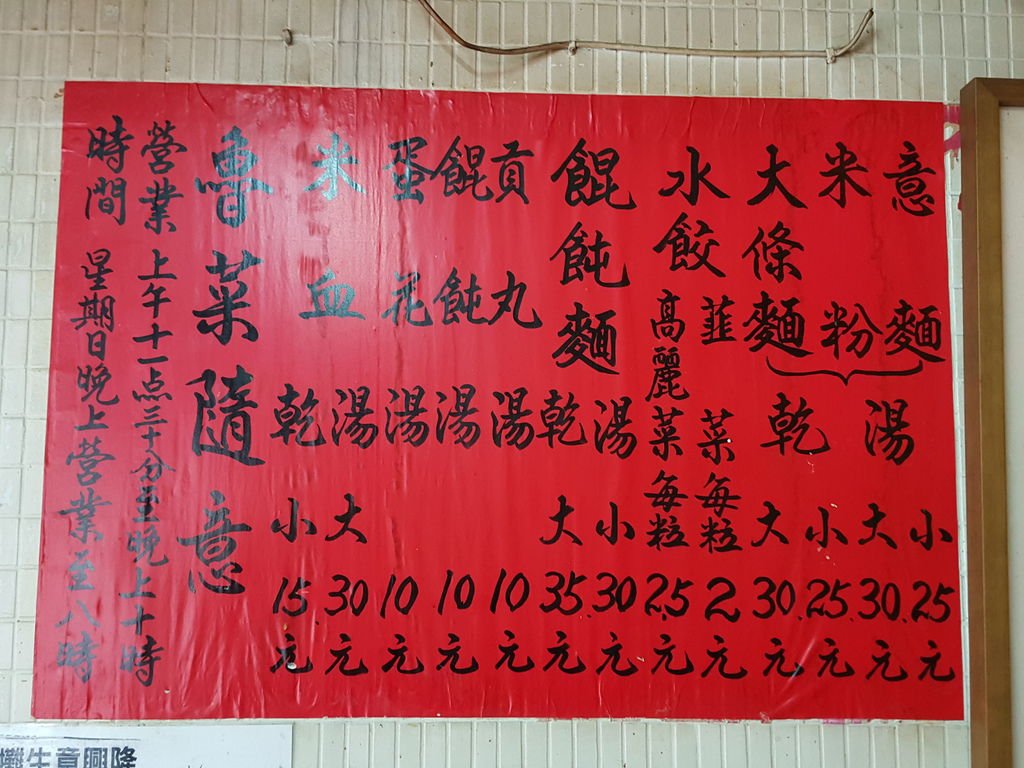 意麵
米粉
大條麵
湯 小 25元
大 30元
乾 小 25元
大 30元
水餃
韮菜每粒 2元
高麗菜每粒 2.5元
餛飩麵
湯 小 30元
乾 大 35元
貢丸湯 10元
餛飩湯 10元
蛋花湯 10元
米血
湯 大 30元
乾 小 15元
魯菜隨意
營業 上午十一点三十分至晚上十時
時間 星期日晚上營業至八時
攤生意興隆